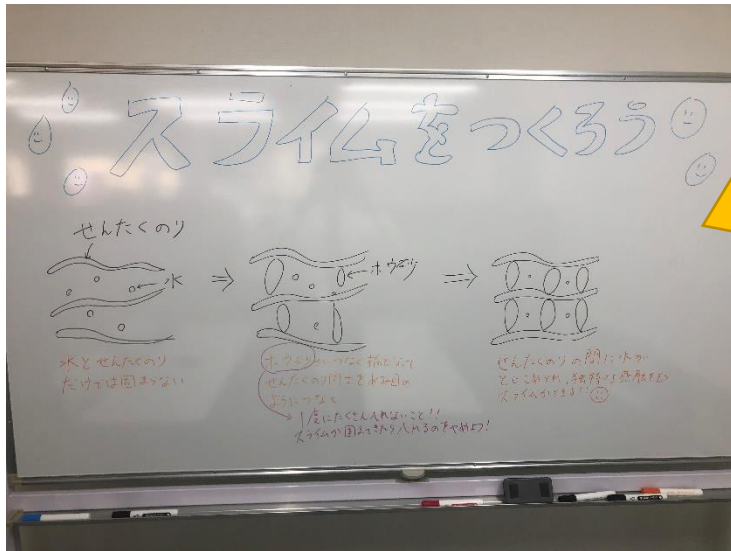 スライムをつくろう
せんたくのり
水
ホウ砂
水とせんたくのり
だけでは固まらない
ホウ砂がつなぐ橋となって
せんたくのり同士を水あみ目の
ようにつなぐ
1度にたくさん入れないこと!!
スライムが固まってきたら入れるのをやめよう!
せんたくのりの間に水が
とじこめられ、独特な感触をもつ
スライムができる!!